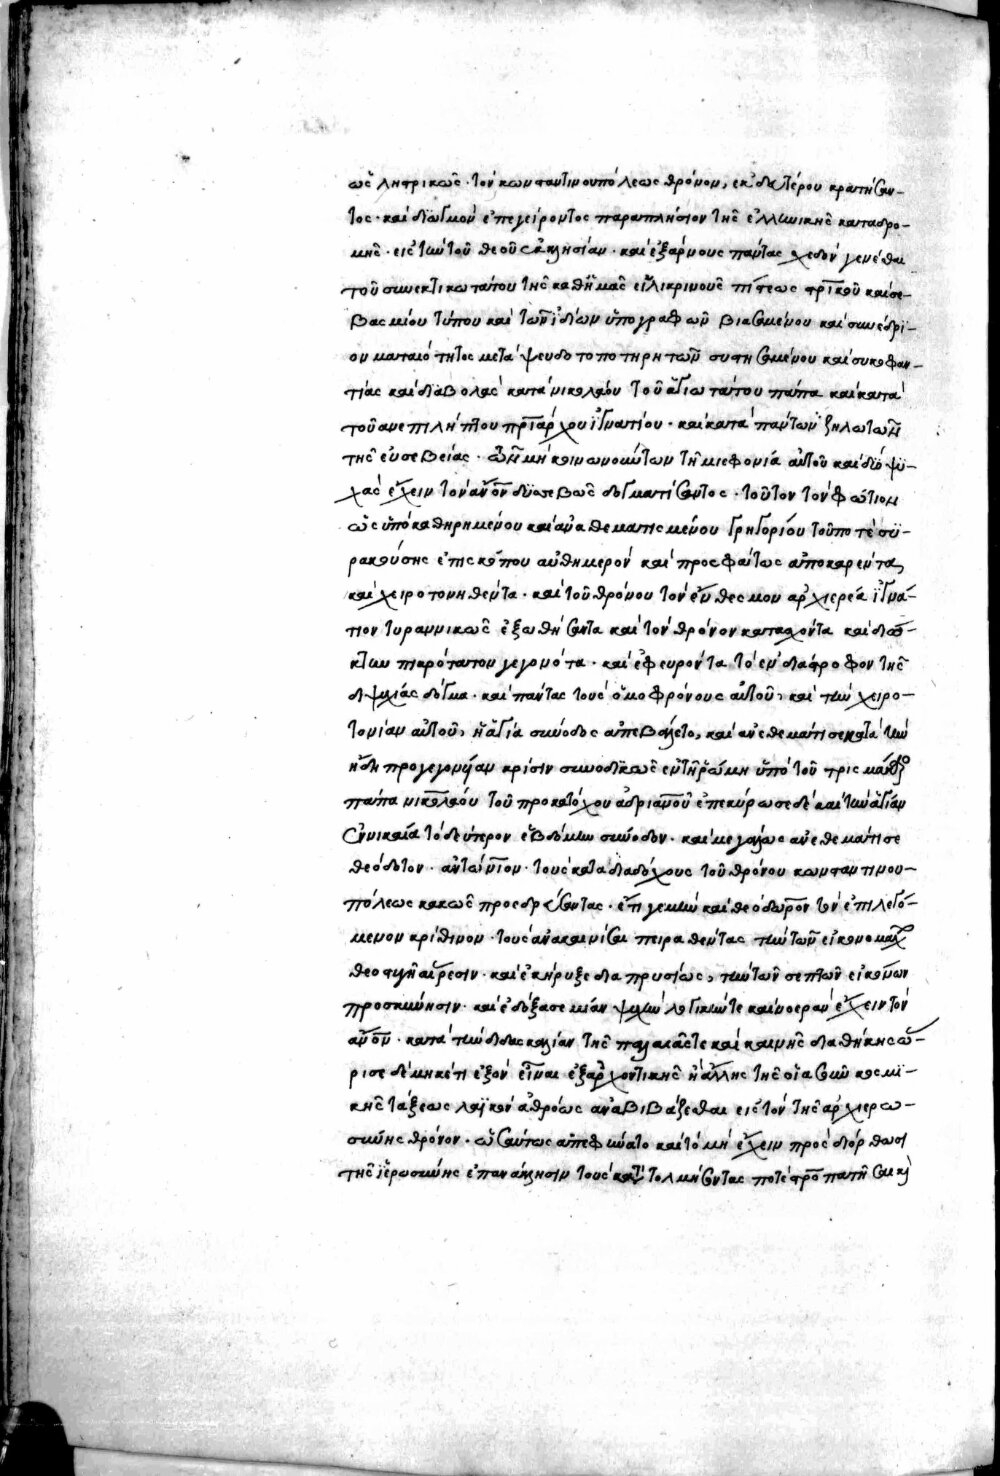 ὡς λῃτρικῶς · τὸν κωνσταντινουπόλεως θρόνον, ἐκ δευτέρου κρατήσαν-
τος · καὶ διωγμὸν ἐπεγείροντος παραπλήσιον τῆς ἑλληνικῆς καταδρο-
μῆς · εἰς τὴν τοῦ θεοῦ ἐκκλησίαν · καὶ ἐξάρνους πάντας σχεδὸν γενέσθαι
τοῦ συνεκτικωτάτου τῆς καθ ἡμᾶς εἰλικρινοῦς πίστεως σταυρικοῦ καὶ σε-
βασμίου τύπου καὶ τῶν ἰδίων ὑπογραφῶν βιασαμένου καὶ συνέδρι-
ον ματαιότητος μετὰ ψευδοτοποτηρητῶν συστησαμένου καὶ συκοφαν-
τίας καὶ διαβολὰς κατὰ νικολάου τοῦ ἁγιωτάτου πάπα καὶ κατὰ
τοῦ ἀνεπιλήπτου πριάρχου ἰγνατίου · καὶ κατὰ πάντων ζηλωτῶν
τῆς εὐσεβείας · τῶν μὴ κοινωνούντων τῇ μιαιφονία αὐτοῦ καὶ δύο ψυ-
χὰς ἔχειν τὸν ἄνον δυσσεβῶς δογματίσαντος · τοῦτον τὸν φώτιον
ὡς ὑπὸ καθηρημένου καὶ ἀναθεματισμένου γρηγορίου τοῦ ποτὲ συ-
ρακούσης ἐπισκόπου αὐθημερὸν καὶ προσφάτως ἀποκαρέντα,
καὶ χειροτονηθέντα · καὶ τοῦ θρόνου τὸν ἔνθεσμον ἀρχιερέα ἰγνά-
τιον τυραννικῶς ἐξωθήσαντα καὶ τὸν θρόνον κατασχόντα καὶ διώ-
κτην πικρότατον γεγονότα · καὶ ἐφευρόντα τὸ ἐνδιάστροφον τῆς
διψυχίας δόγμα · καὶ πάντας τοὺς ὁμόφρονας αὐτοῦ, καὶ τὴν χειρο-
τονίαν αὐτοῦ, ἡ ἁγία σύνοδος ἀπεβάλετο, καὶ ἀνεθεμάτισε κατὰ τὴν
ἤδη προγεγονυῖαν κρίσιν συνοδικῶς ἐν τῇ ῥώμη ὑπὸ τοῦ τρισμακαρίου
πάπα νικολάου τοῦ προκατόχου ἀδριανοῦ ἐπεκύρωσε δὲ καὶ τὴν ἁγίαν
ἐν νικαία τὸ δεύτερον ἑβδόμην σύνοδον · καὶ μεγάλως ἀνεθεμάτισε
θεόδοτον · ἀντώνιον · τοὺς κατὰ διαδόχους τοῦ θρόνου κωνσταντινου-
πόλεως κακῶς προεδρεύσαντας · ἔτι γε μὴν καὶ θεόδωρον τὸν ἐπιλεγό-
μενον κρίθινον · τοὺς ἀνακαινίσαι πειραθέντας τὴν τῶν εἰκονομάχων
θεοστυγῆ αἵρεσιν · καὶ ἐκήρυξε διαπρυσίως, τὴν τῶν σεπτῶν εἰκόνων
προσκύνησιν · καὶ ἐδόξασε μίαν ψυχὴν λογικήν τε καὶ νοερὰν ἔχειν τὸν
ἄνον · κατὰ τὴν διδασκαλίαν τῆς παλαιᾶς τε καὶ καινῆς διαθήκης ὥ-
ρισε δὲ μηκέτι ἐξὸν εἶναι ἐξ ἀρχοντικῆς ἢ ἄλλης τῆς οἱασοῦν κοσμι-
κῆς τάξεως λαϊκὸν ἀθρόως ἀναβιβάζεσθαι εἰς τὸν τῆς ἀρχιερω-
σύνης θρόνον · ὡσαύτως ἀπεφήνατο καὶ τὸ μὴ ἔχειν πρὸς διόρθωσι
τῆς ἱερωσύνης ἐπανάκλησιν τοὺς κατὰ τολμήσαντας ποτὲ στρο πατῆσαι κὶ